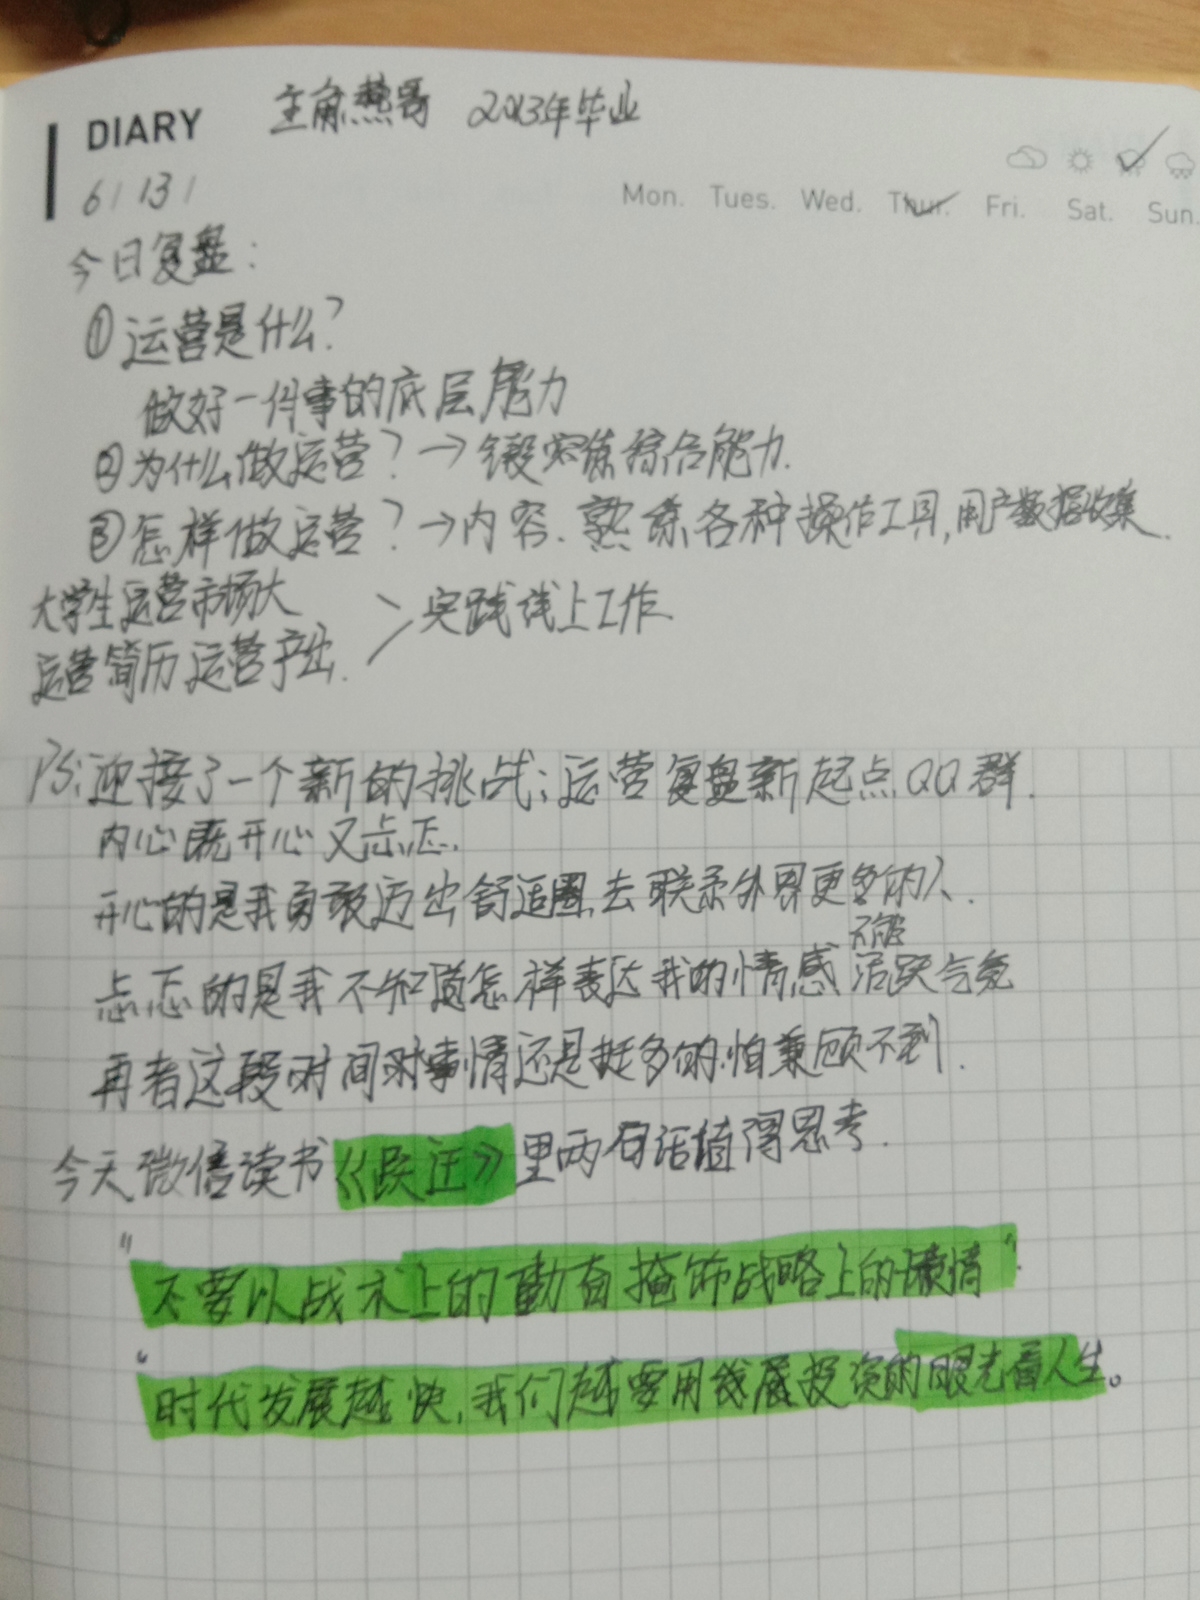 DIARY 主角燕哥 2013年毕业
6 / 13 /
Mon. Tues. Wed. Thur. Fri. Sat. Sun.
今日复盘:
①运营是什么?
做好一件事的底层能力
②为什么做运营?→锻炼综合能力.
③怎样做运营?→内容.熟练各种操作工具,用户数据收集.
大学生运营市场大
运营简历运营产出.
实践线上工作.
PS:迎接了一个新的挑战:运营复盘新起点QQ群.
内心既开心又忐忑.
开心的是我勇敢迈出舒适圈去联系外界更多的人.
不能
忐忑的是我不知道怎样表达我的情感 活跃气氛
再者这段时间对事情还是挺多的.怕兼顾不到.
今天微信读书《跃迁》里两句话值得思考.
"不要以战术上的勤奋掩饰战略上的懒惰"
"时代发展越快,我们越要用发展投资的眼光看人生。